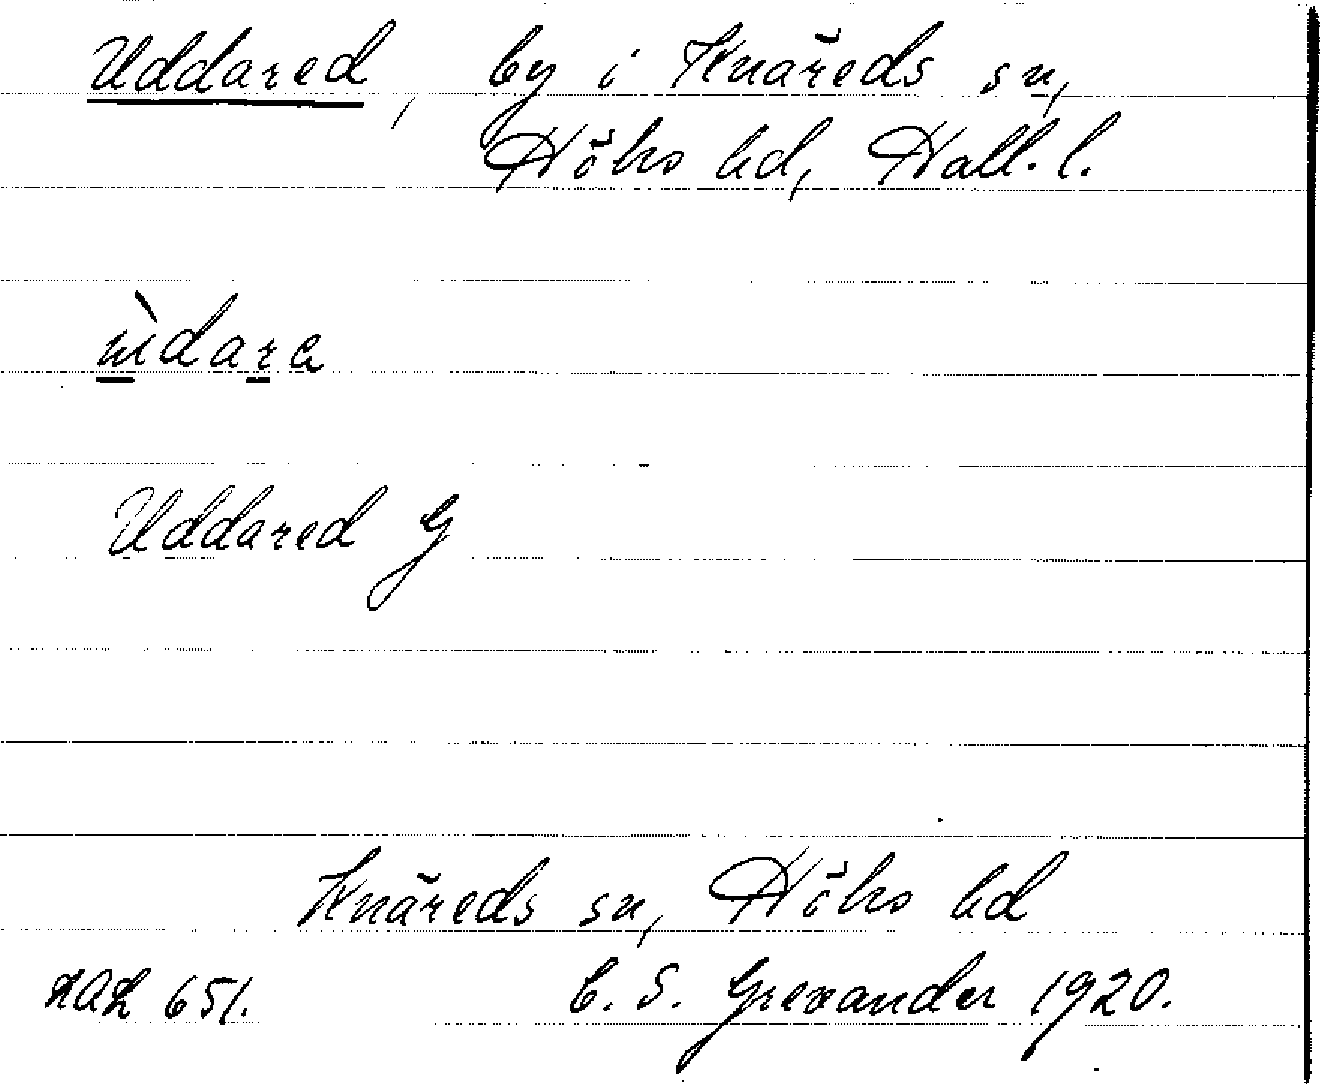 Uddared, by i Knäreds sn,
Höks hd, Hall. l.
ùdara
Uddared G
Knäreds sn, Höks hd
LAL 651. C. S. Grexander 1920.